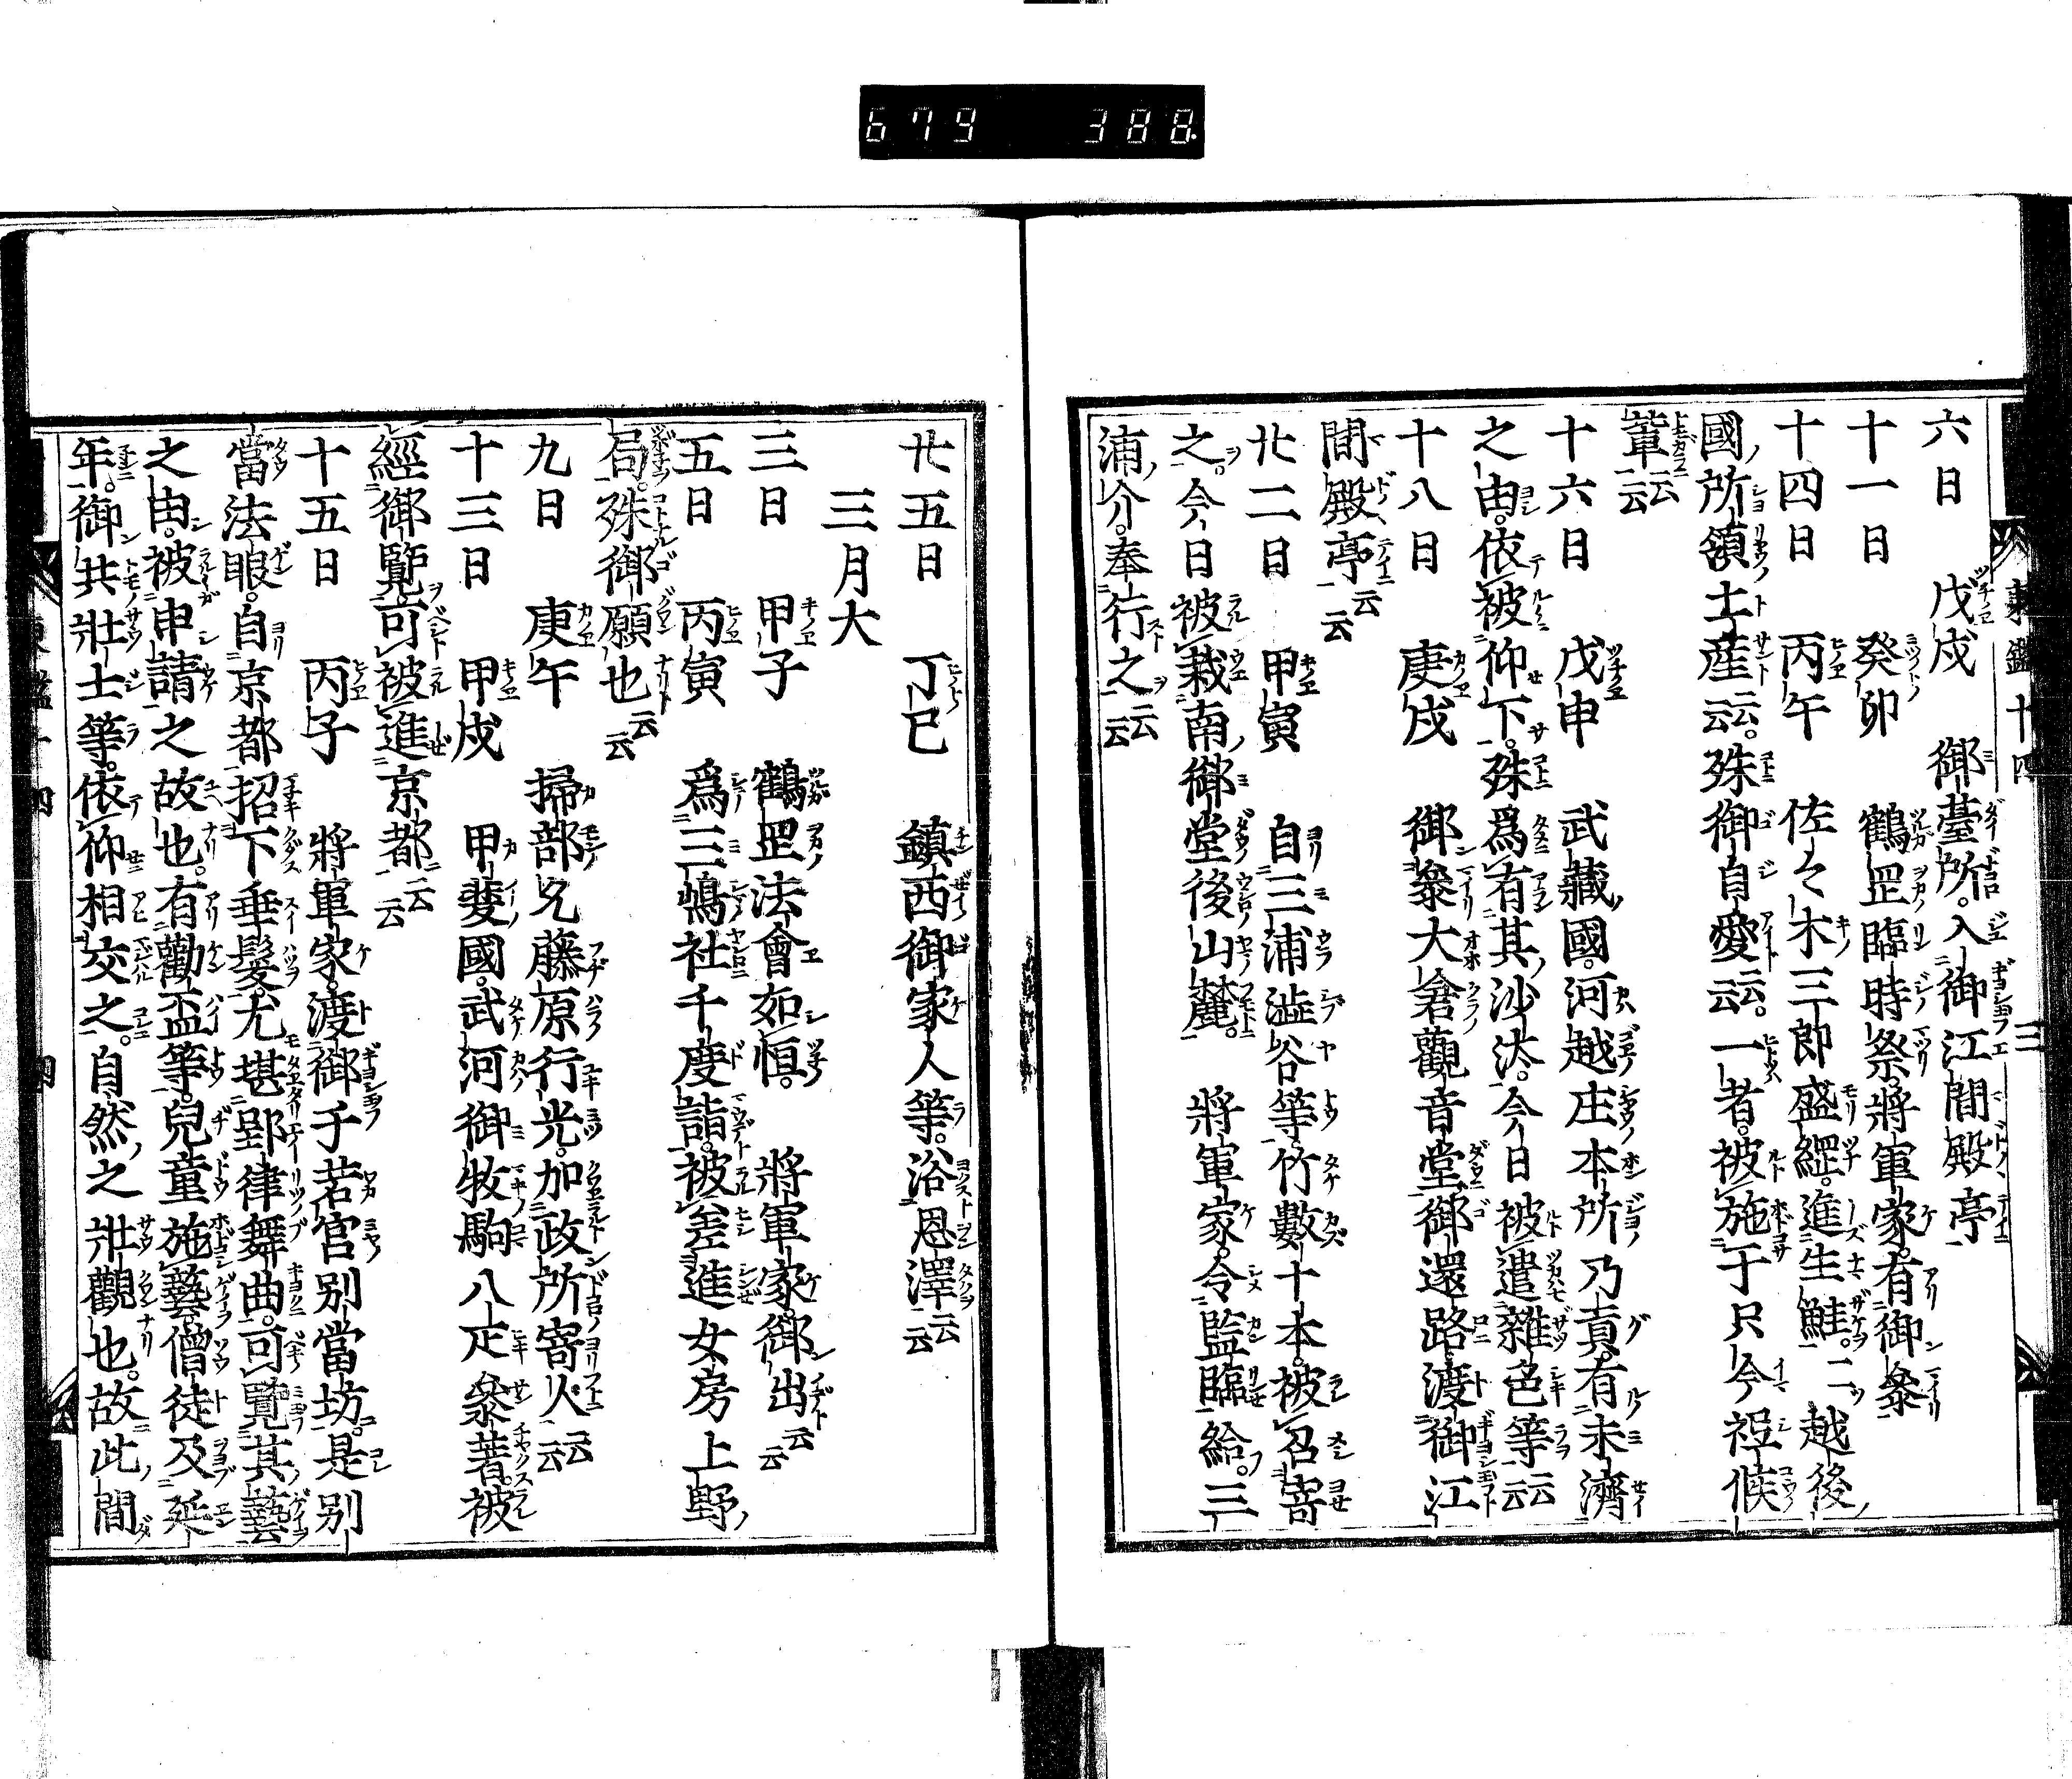 679 388
東鑑十四 三
六日 戊戌 御臺所。入御江間殿亭
十一日 癸卯 鶴罡臨時祭。將軍家。有御參
十四日 丙午 佐々木三郎盛綱。進生鮭。二 越後
國所領土產云云。殊御自愛云云。一者。被施于只今祗候
輩云云
十六日 戊申 武藏國。河越庄本所乃貢。有未濟
之由。依被仰下。殊爲有其沙汰。今日被遣雜色等云云
十八日 庚戌 御參大倉觀音堂。御還路。渡御江
間殿亭云云
廿二日 甲寅 自三浦澁谷等。竹數十本。被召寄
之。今日被栽南御堂後山麓。 將軍家。令監臨給。三
浦介。奉行之云云
廿五日 丁巳 鎮西御家人等。浴恩澤云云
三月大
三日 甲子 鶴罡法會如恒。 將軍家。御出云云
五日 丙寅 爲三嶋社千度詣。被差進女房上野
局。殊御願也云云
九日 庚午 掃部允藤原行光。加政所寄人云云
十三日 甲戌 甲斐國。武河御牧駒八疋參著。被
經御覽。可被進京都云云
十五日 丙子 將軍家。渡御于若宮别當坊。是别
當法眼。自京都招下垂髮。尤堪郢律舞曲。可覽其藝
之由。被申請之故也。有勸盃等。兒童施藝。僧徒及延
年。御共壯士等。依仰相交之。自然之壯觀也。故此間